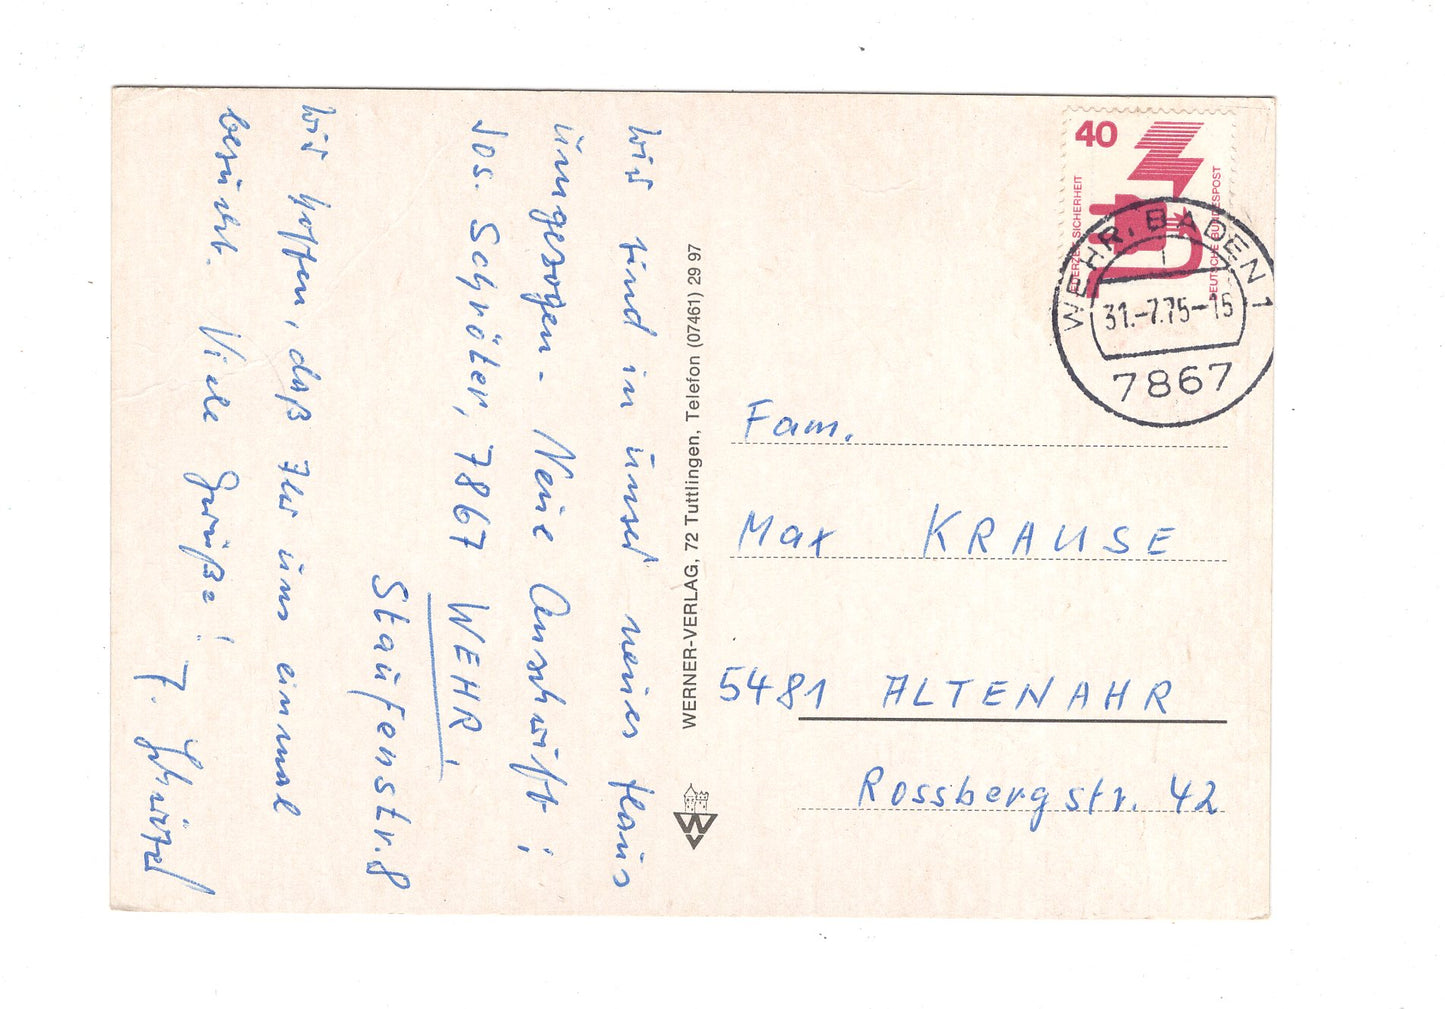 Wir sind in unser neues Haus
umgezogen - Neue Anschrift:
Jos. Schröter, 7867 WEHR,
Staufenstr. 8
Wir hoffen, daß Ihr uns einmal
besucht. Viele Grüße!
J. Schröter
WERNER-VERLAG, 72 Tuttlingen, Telefon (07461) 29 97
40
JEDERZEIT SICHERHEIT
DEUTSCHE BUNDESPOST
WEHR, BADEN 1
31.-7.75-15
7867
Fam.
Max KRAUSE
5481 ALTENAHR
Rossbergstr. 42